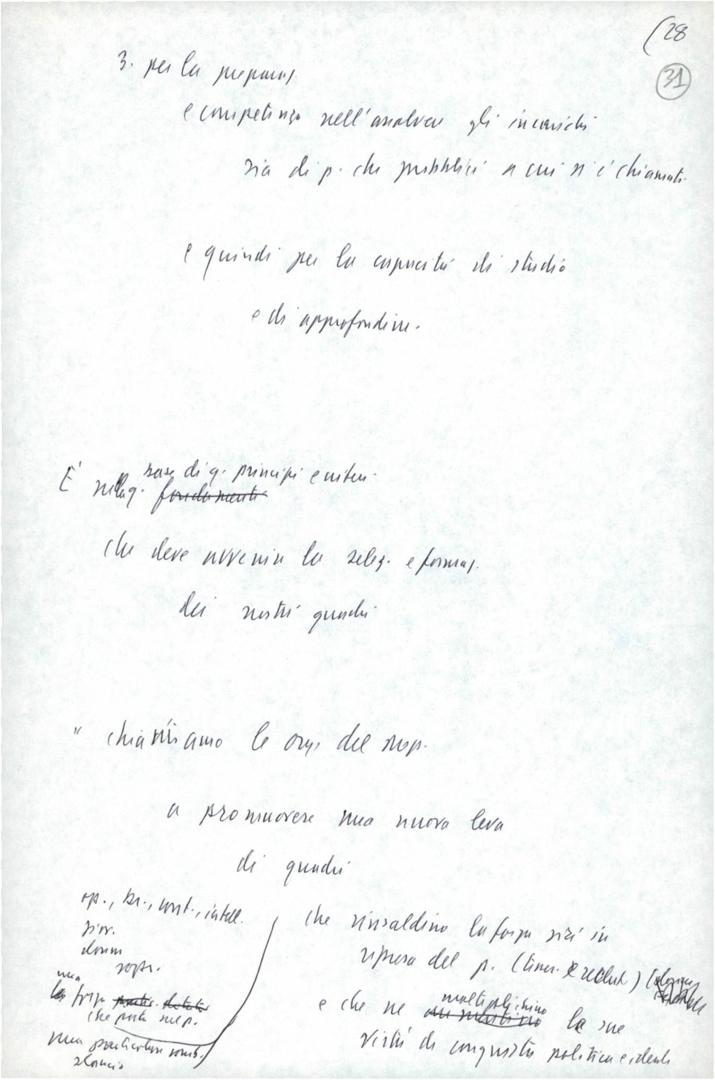 (28
31
3. per la preparaz.
e competenza nell'assolvere gli incarichi
sia di p. che pubblici a cui si è chiamati.
e quindi per la capacità di studio
e di approfondire.
base di q. principi e criteri
È sulla fondamenti
che deve avvenire la selez. e formaz.
dei nostri quadri
" chiamiamo le org. del
a promuovere una nuova leva
di quadri
op., br., cont., intell.
giov.
donne
sopr.
una
la forza
che porta nel p.
una particolare
slancio
che rinsaldino la forza già in
ripresa del p. (tess. e reclut.)
e che ne moltiplichino la sua
virtù di conquista politica e ideale